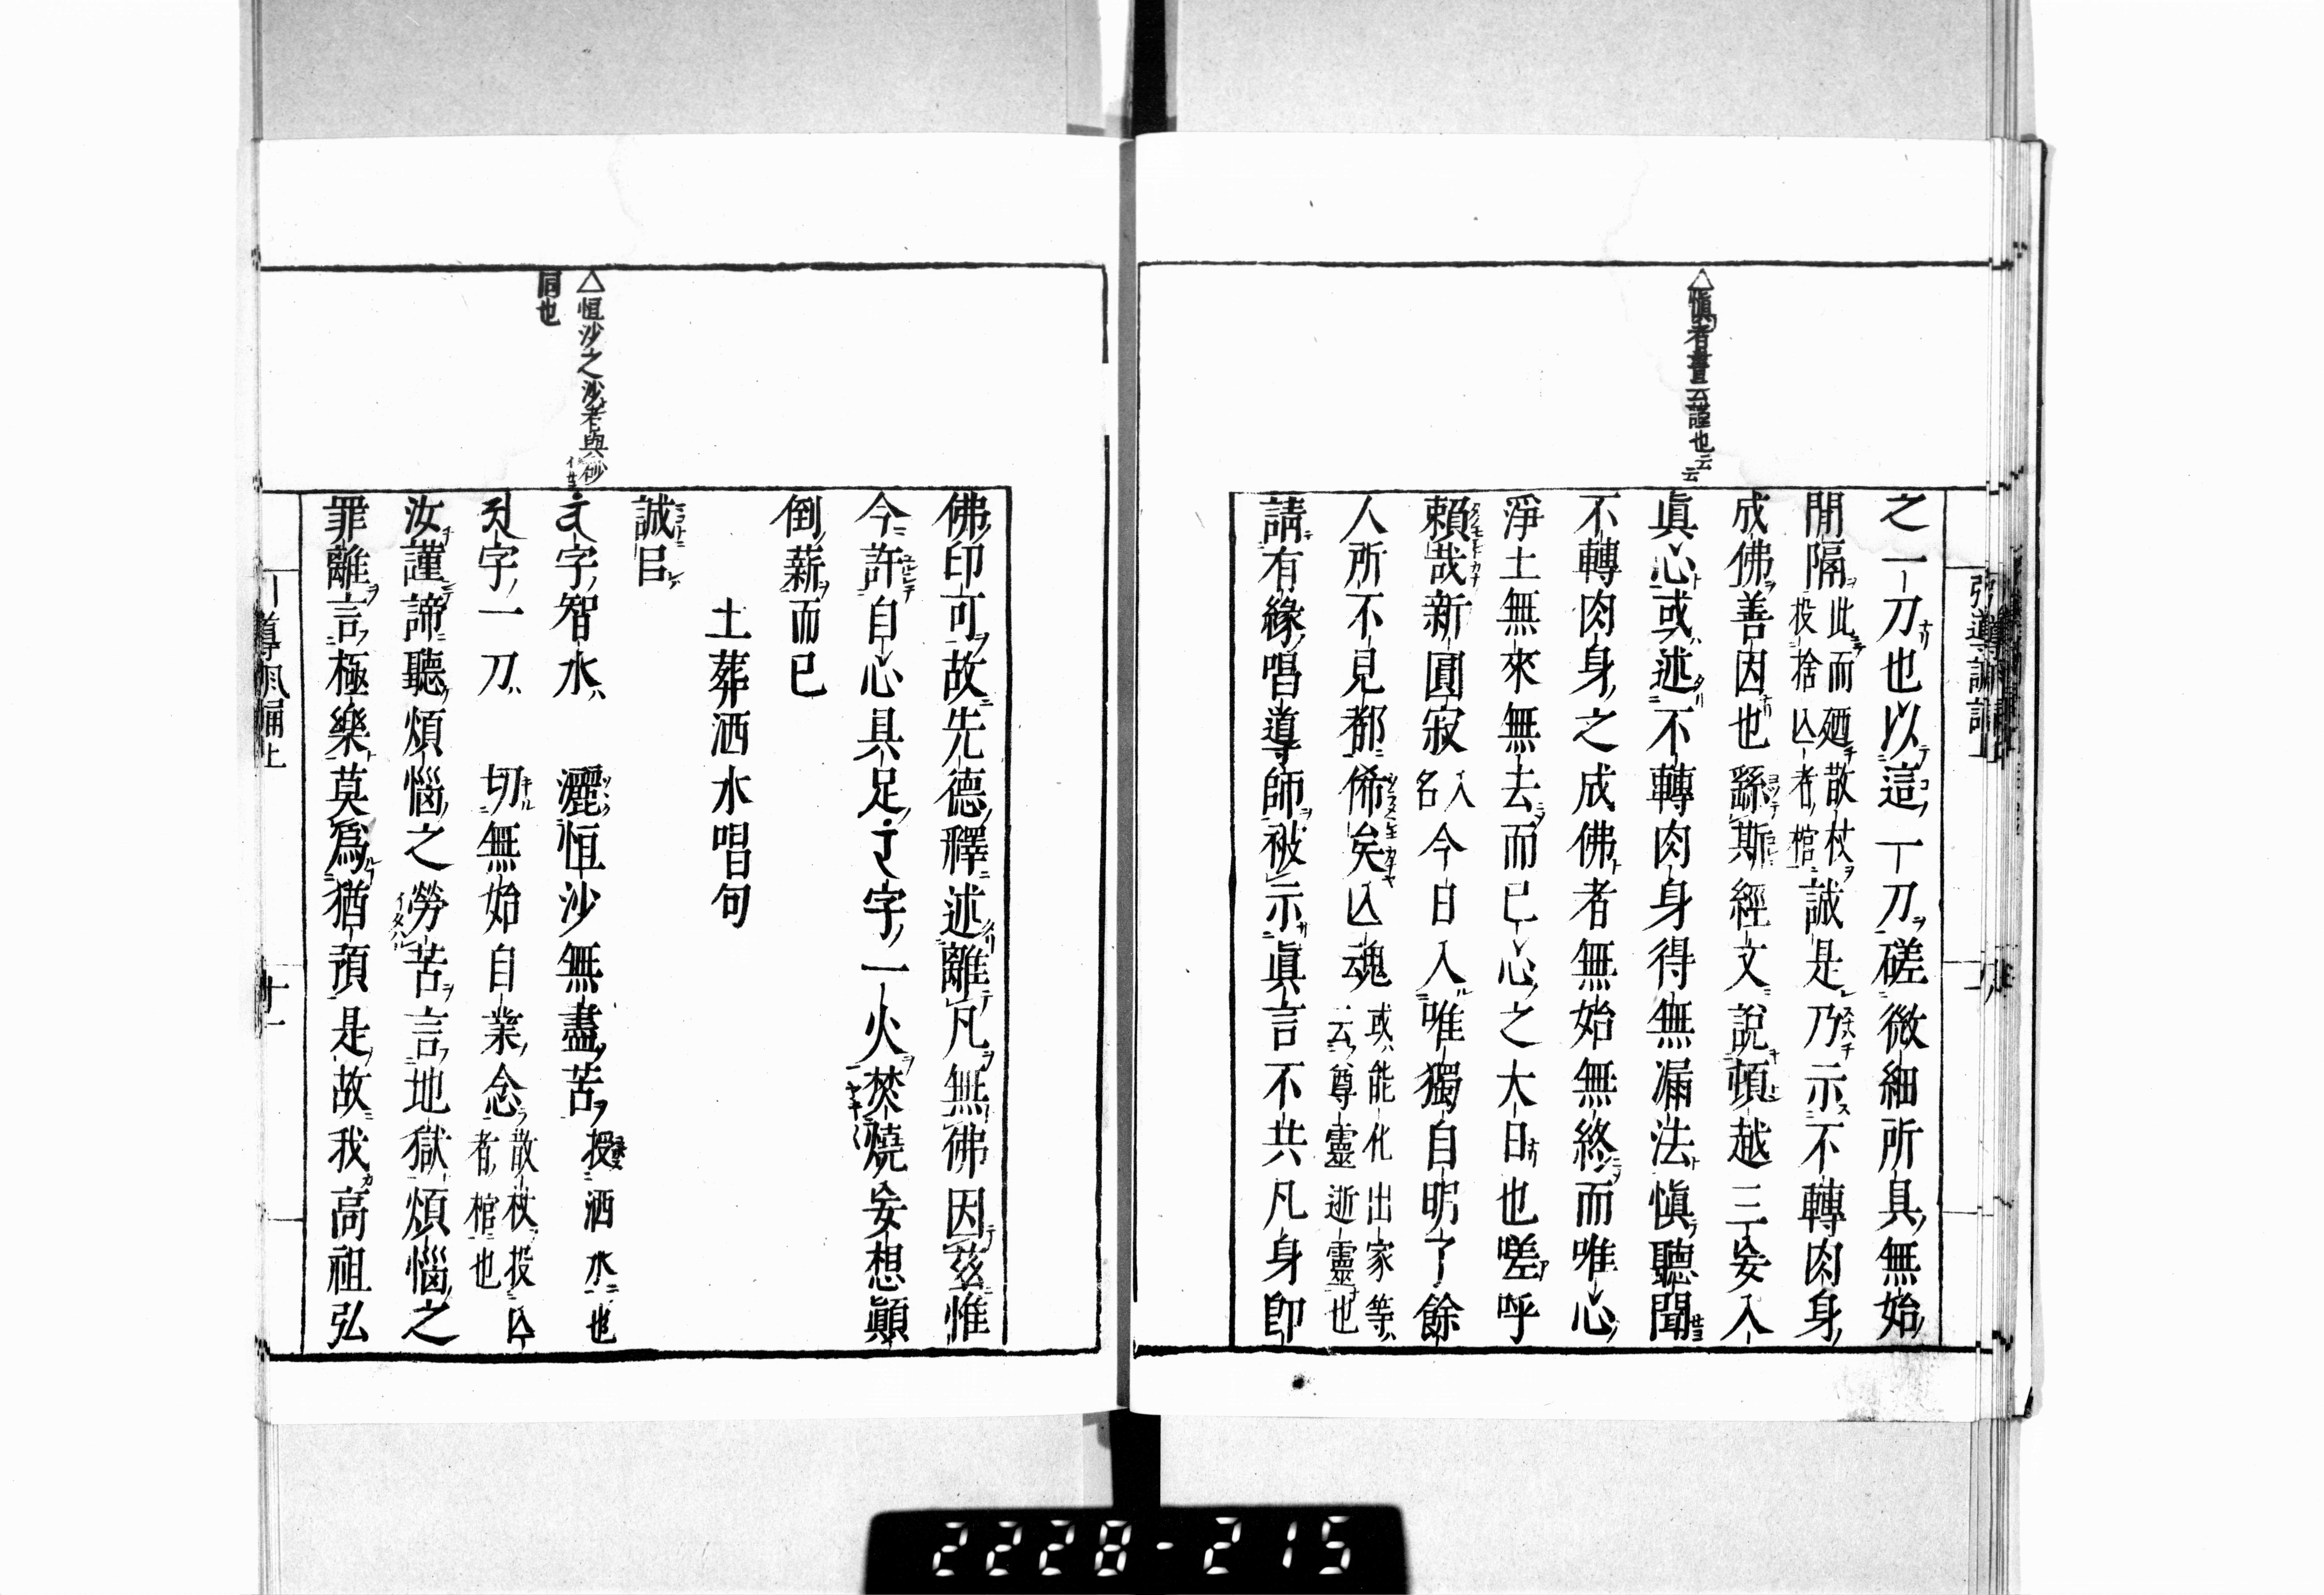 △愼者書云謹也云云
之一刀也以這一刀磋微細所具無始
間隔此而廼散杖投捨亡者棺誠是乃示不轉肉身
成佛善因也繇斯經文說頓越三妄入
眞心或述不轉肉身得無漏法愼聽聞
不轉肉身之成佛者無始無終而唯心
淨土無來無去而已心之大日也嗟呼
賴哉新圓寂入名今日入唯獨自明了餘
人所不見都俙矣亡魂或能化出家等云尊靈逝靈也
請有緣唱導師被示眞言不共凡身卽
△恒沙之沙者與砂
同也
佛印可故先德釋述離凡無佛因茲惟
今許自心具足字一火焚燒妄想顚
倒薪而已
土葬洒水唱句
誠曰
字智水灑恒沙無盡苦授洒水也
字一刀切無始自業念散杖投亡者棺也
汝謹諦聽煩惱之勞苦言地獄煩惱之
罪離言極樂莫爲猶預是故我高祖弘
2228-215